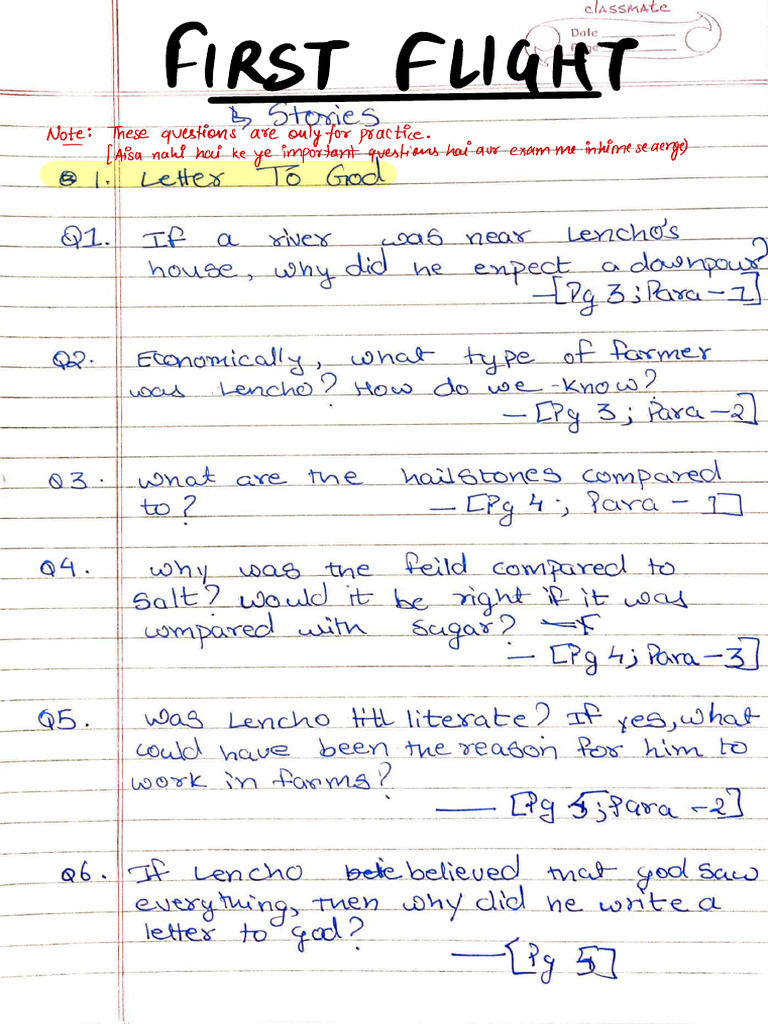 classmate
Date
Page
FIRST FLIGHT
↳ Stories
Note: These questions are only for practice.
[Aisa nahi hai ke ye important questions hai aur exam me inhime se aenge)
1. Letter To God
Q1. If a river was near Lencho's
house, why did he expect a downpour?
—[Pg 3; Para - 1]
Q2. Economically, what type of farmer
was Lencho? How do we know?
— [Pg 3; Para - 2]
Q3. What are the hailstones compared
to? — [Pg 4; Para - 1]
Q4. why was the feild compared to
salt? Would it be right if it was
compared with sugar?
— [Pg 4; Para - 3]
Q5. was Lencho literate? If yes, what
could have been the reason for him to
work in farms?
— [Pg 5; Para - 2]
Q6. If Lencho believed that god saw
everything, then why did he write a
letter to god?
— [Pg 5]